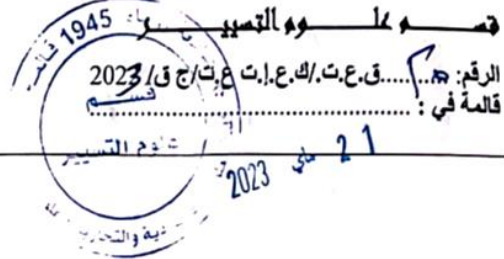 قسم علوم التسيير
الرقم: .........ق.ع.ت./ك.ع.إ.ت ع.ت/ج ق/2023
قالمة في : ........................................
1945
قسم
علوم التسيير
21 ماي 2023